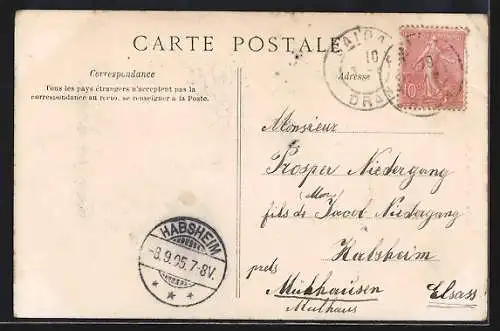 CARTE POSTALE
Correspondance
Tous les pays étrangers n'acceptent pas la
correspondance au recto. se renseigner à la Poste.
Adresse
SAIDA
10
ORAN
10
Monsieur
Prosper Niedergang
fils de Jacob Niedergang
Habsheim
près
Mülhausen Elsass
Mulhaus
HABSHEIM
-8.9.05.7-8V.